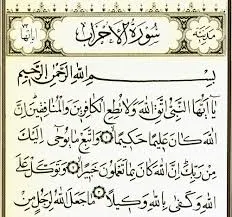 مدنية سُورَةُ الْأَحْزَابِ آياتها
بِسْمِ اللهِ الرَّحْمٰنِ الرَّحِيمِ
يَا أَيُّهَا النَّبِيُّ اتَّقِ اللهَ وَلَا تُطِعِ الْكَافِرِينَ وَالْمُنَافِقِينَ إِنَّ
اللهَ كَانَ عَلِيمًا حَكِيمًا ۝ وَاتَّبِعْ مَا يُوحَى إِلَيْكَ
مِنْ رَبِّكَ إِنَّ اللهَ كَانَ بِمَا تَعْمَلُونَ خَبِيرًا ۝ وَتَوَكَّلْ عَلَى
اللهِ وَكَفَى بِاللهِ وَكِيلًا ۝ مَا جَعَلَ اللهُ لِرَجُلٍ مِنْ